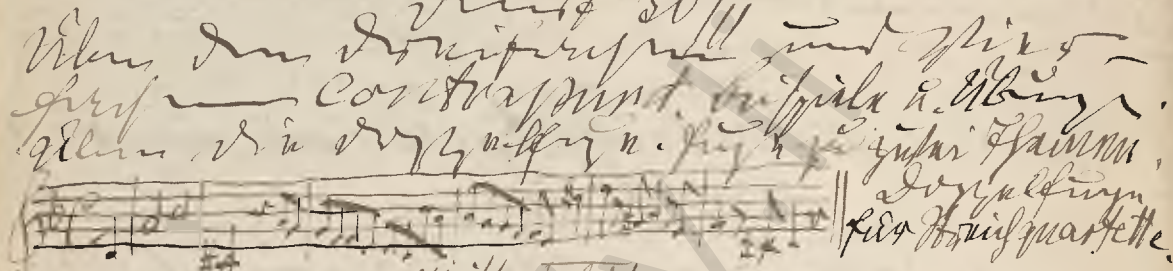 Über den dreifachen und vier-
fachen Contrapunkt. Beispiele u. Übung.
Über die Doppelfuge. Fuge zu zwei Themen.
Doppelfuge
für Streichquartette.